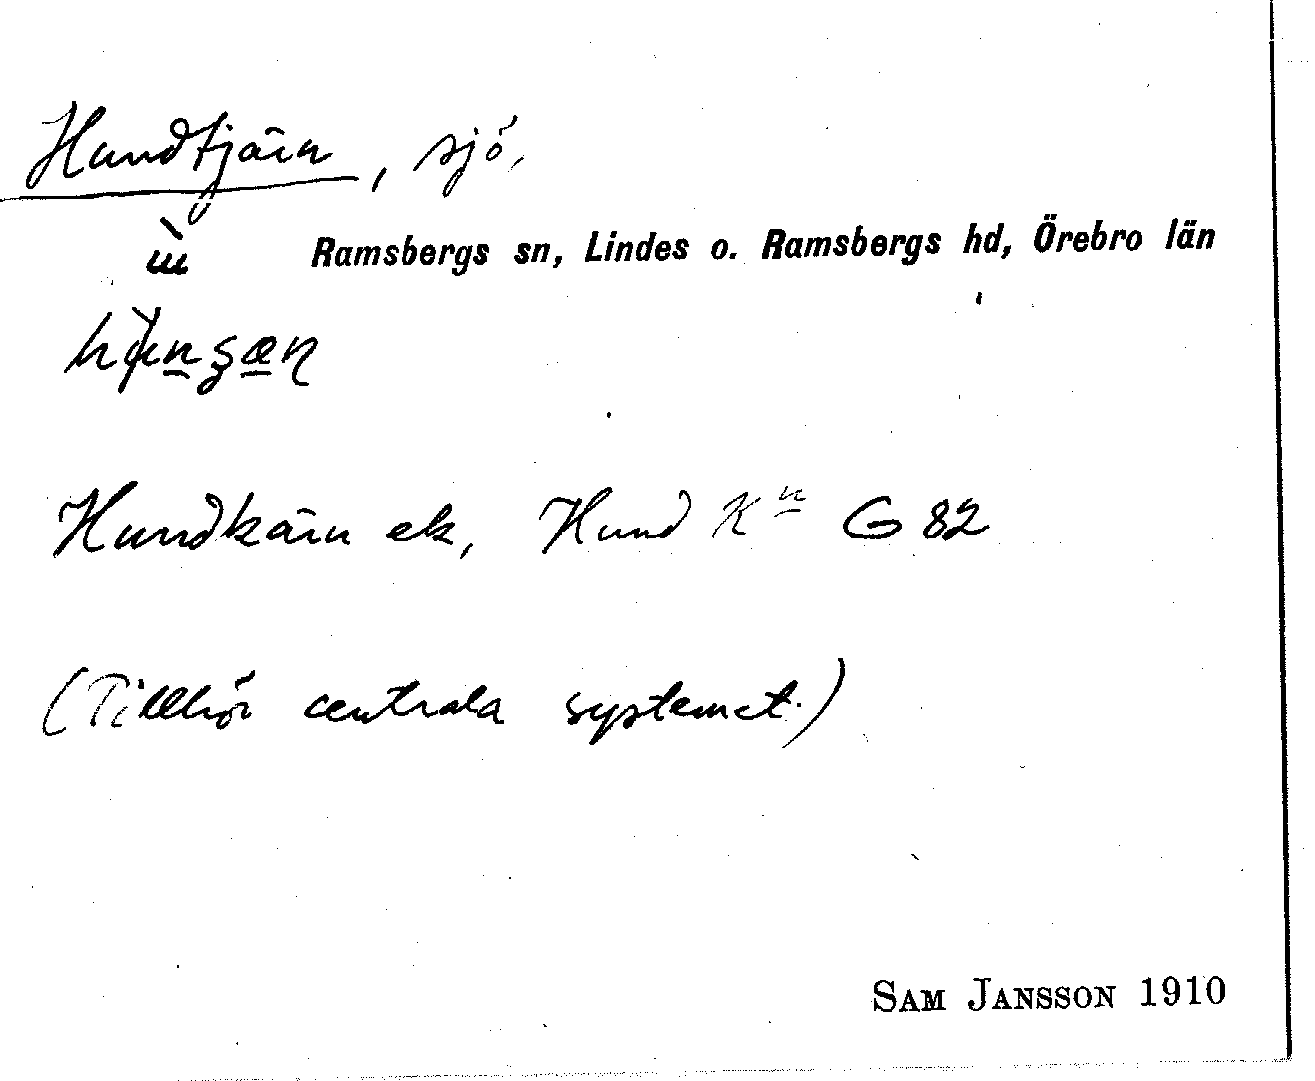 Hundtjärn, sjö,
Ramsbergs sn, Lindes o. Ramsbergs hd, Örebro län
Hundkärn ek, Hund Kⁿ G 82
(Tillhör centrala systemet.)
SAM JANSSON 1910